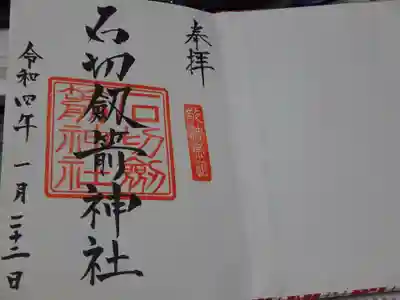 奉拝
石切劔箭神社
石切劔
箭神社
令和四年一月二十二日